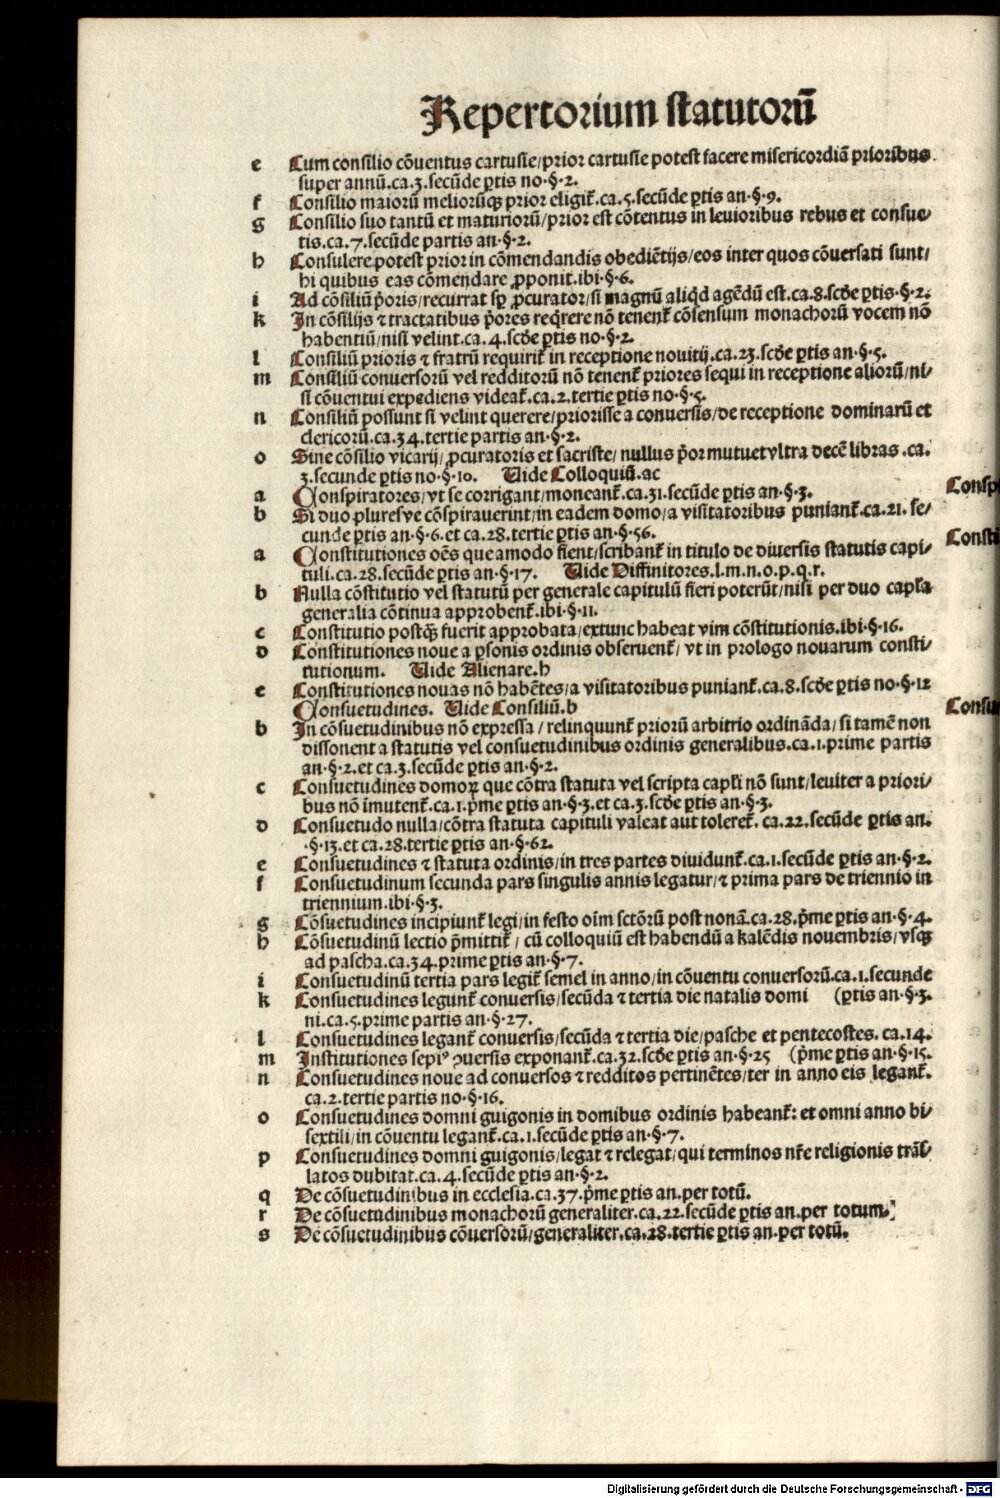 Repertorium statutorū
e Cum consilio cōventus cartusie/prior cartusie potest facere misericordiā prioribus
super annū.ca.3.secūde ꝑtis no.§.2.
f Consilio maiorū meliorūqꝫ prior eligit̄.ca.5.secūde ꝑtis an.§.9.
g Consilio suo tantū et maturiorū/prior est cōtentus in levioribus rebus et consue/
tis.ca.7.secūde partis an.§.2.
h Consulere potest prior in cōmendandis obediētijs/eos inter quos cōversati sunt/
hi quibus eas cōmendare ꝓponit.ibi.§.6.
i Ad cōsiliū p̄oris/recurrat sp̄ ꝓcurator/si magnū aliq̇d agēdū est.ca.8.scd̄e ꝑtis.§.2.
k In cōsilijs ⁊ tractatibus p̄ores req̇rere nō tenent̄ cōsensum monachorū vocem nō
habentiū/nisi velint.ca.4.scd̄e ꝑtis no.§.2.
l Consiliū prioris ⁊ fratrū requirit̄ in receptione novitij.ca.23.scd̄e ꝑtis an.§.5.
m Consiliū conversorū vel redditorū nō tenent̄ priores sequi in receptione aliorū/ni/
si cōventui expediens videat̄.ca.2.tertie ꝑtis no.§.5.
n Consiliū possunt si velint querere/priorisse a conversis/de receptione dominarū et
clericorū.ca.34.tertie partis an.§.2.
o Sine cōsilio vicarij/ꝓcuratoris et sacriste/nullus p̄or mutuet vltra decē libras.ca.
3.secunde ꝑtis no.§.10. Vide Colloquiū.ac
a Conspiratores/vt se corrigant/moneant̄.ca.31.secūde ꝑtis an.§.3.
Consp
b Si duo ꝑluresve cōspiraverint/in eadem domo/a visitatoribus puniant̄.ca.21.se/
cunde ꝑtis an.§.6.et ca.28.tertie ꝑtis an.§.56.
Consti
a Constitutiones oēs que amodo fient/scribant̄ in titulo de diversis statutis capi/
tuli.ca.28.secūde ꝑtis an.§.17. Vide Diffinitores.l.m.n.o.p.q.r.
b Nulla cōstitutio vel statutū per generale capitulū fieri poterūt/nisi per duo capl̄a
generalia cōtinua approbent̄.ibi.§.11.
c Constitutio postqꝫ̄ fuerit approbata/extunc habeat vim cōstitutionis.ibi.§.16.
d Constitutiones nove a ꝑsonis ordinis observent̄/vt in prologo novarum consti/
tutionum. Vide Alienare.h
e Constitutiones novas nō habētes/a visitatoribus puniant̄.ca.8.scd̄e ꝑtis no.§.12
Consuetudines. Vide Consiliū.b
Consu
b In cōsuetudinibus nō expressa/relinquunt̄ priorū arbitrio ordināda/si tamē non
dissonent a statutis vel consuetudinibus ordinis generalibus.ca.1.prime partis
an.§.2.et ca.3.secūde ꝑtis an.§.2.
c Consuetudines domoꝝ que cōtra statuta vel scripta capl̄i nō sunt/leviter a priori/
bus nō īmutent̄.ca.1.p̄me ꝑtis an.§.3.et ca.3.scd̄e ꝑtis an.§.3.
d Consuetudo nulla/cōtra statuta capituli valeat aut toleret̄. ca.22.secūde ꝑtis an.
.§.13.et ca.28.tertie ꝑtis an.§.62.
e Consuetudines ⁊ statuta ordinis/in tres partes dividunt̄.ca.1.secūde ꝑtis an.§.2.
f Consuetudinum secunda pars singulis annis legatur/⁊ prima pars de triennio in
triennium.ibi.§.3.
g Cōsuetudines incipiunt̄ legi/in festo oīm sctōrū post nonā.ca.28.p̄me ꝑtis an.§.4.
h Cōsuetudinū lectio p̄mittit̄/cū colloquiū est habendū a kalēdis novembris/vsqꝫ
ad pascha.ca.34.prime ꝑtis an.§.7.
i Consuetudinū tertia pars legit̄ semel in anno/in cōventu conversorū.ca.1.secunde
k Consuetudines legunt̄ conversis/secūda ⁊ tertia die natalis domi (ꝑtis an.§.3.
ni.ca.5.prime partis an.§.27.
l Consuetudines legant̄ conversis/secūda ⁊ tertia die/pasche et pentecostes.ca.14.
m Institutiones sepiꝰ ꝯversis exponant̄.ca.32.scd̄e ꝑtis an.§.25 (p̄me ꝑtis an.§.15.
n Consuetudines nove ad conversos ⁊ redditos pertinētes/ter in anno eis legant̄.
ca.2.tertie partis no.§.16.
o Consuetudines domni guigonis in domibus ordinis habeant̄: et omni anno bi/
sextili/in cōventu legant̄.ca.1.secūde ꝑtis an.§.7.
p Consuetudines domni guigonis/legat ⁊ relegat/qui terminos nr̄e religionis trāſ/
latos dubitat.ca.4.secūde ꝑtis an.§.2.
q De cōsuetudinibus in ecclesia.ca.37.p̄me ꝑtis an.per totū.
r De cōsuetudinibus monachorū generaliter.ca.22.secūde ꝑtis an.per totum.
s De cōsuetudinibus cōversorū/generaliter.ca.28.tertie ꝑtis an.per totū.
Digitalisierung gefördert durch die Deutsche Forschungsgemeinschaft - DFG